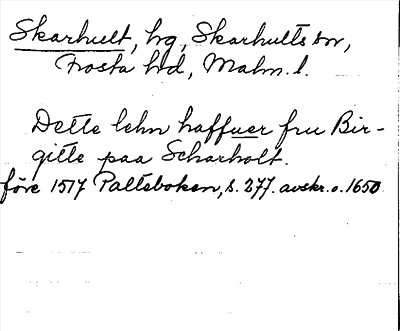 Skarhult, hg, Skarhults sn,
Frosta hd, Malm. l.
Dette lehn haffuer fru Bir-
gitte paa Scharholt.
före 1517 Palteboken, s. 277. avskr. o. 1650